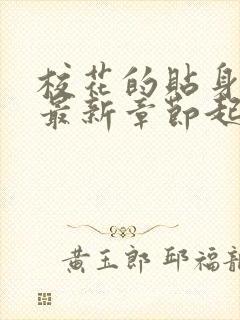 校花的貼身
最新章節起
黃玉郎 邱福龍